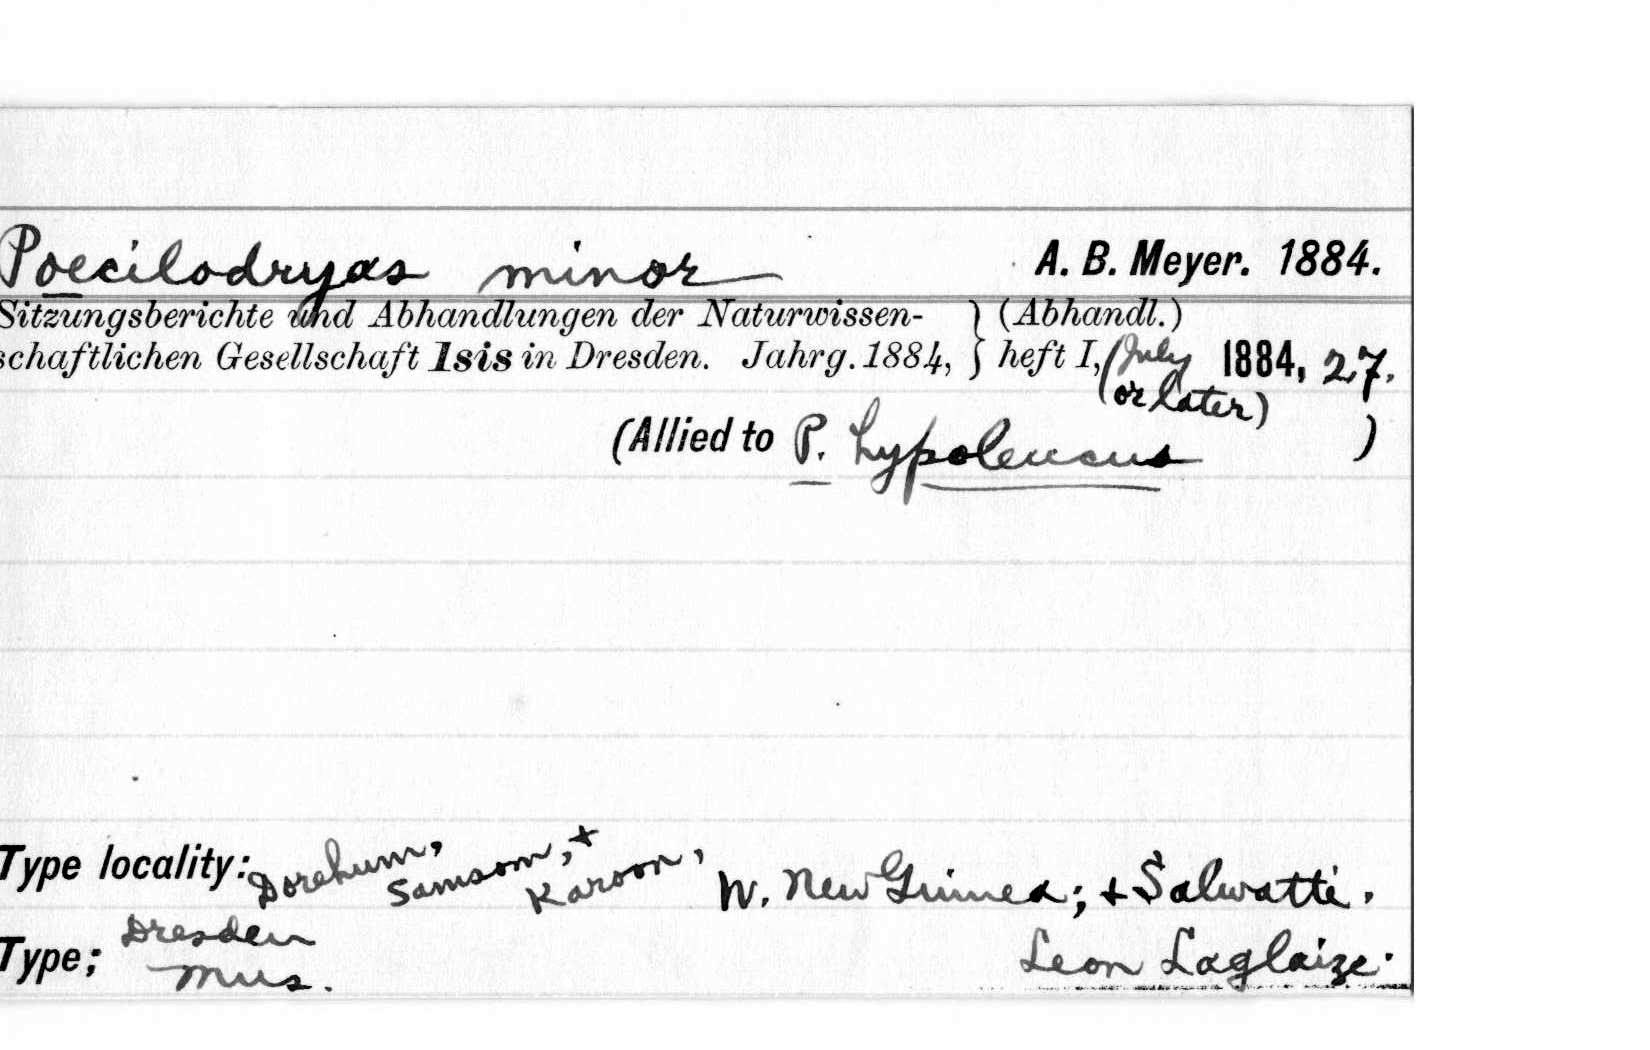 Poecilodryas minor A. B. Meyer. 1884.
Sitzungsberichte und Abhandlungen der Naturwissen- } (Abhandl.)
schaftlichen Gesellschaft Isis in Dresden. Jahrg. 1884, } heft I, (July 1884, 27.
(or later)
(Allied to P. hypoleucus )
Type locality: Dorehum, Samsom, + Karoon, W. New Guinea; + Salwatti.
Type; Dresden Mus. Leon Laglaize.